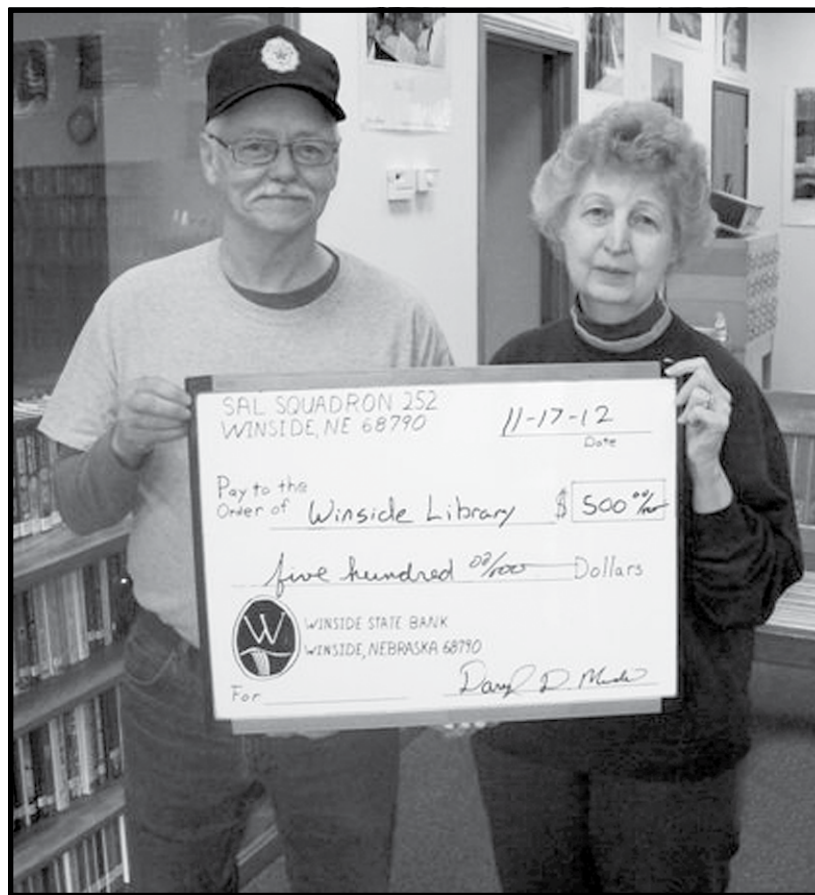 SAL SQUADRON 252
WINSIDE, NE 68790
11-17-12
Date
Pay to the
Order of Winside Library $ 500 00/100
five hundred 00/100 Dollars
W
WINSIDE STATE BANK
WINSIDE, NEBRASKA 68790
For
Daryl D.